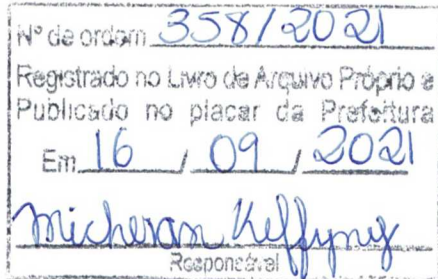 Nº de ordem 358/2021
Registrado no Livro de Arquivo Próprio e
Publicado no placar da Prefeitura
Em 16 / 09 / 2021
Responsável